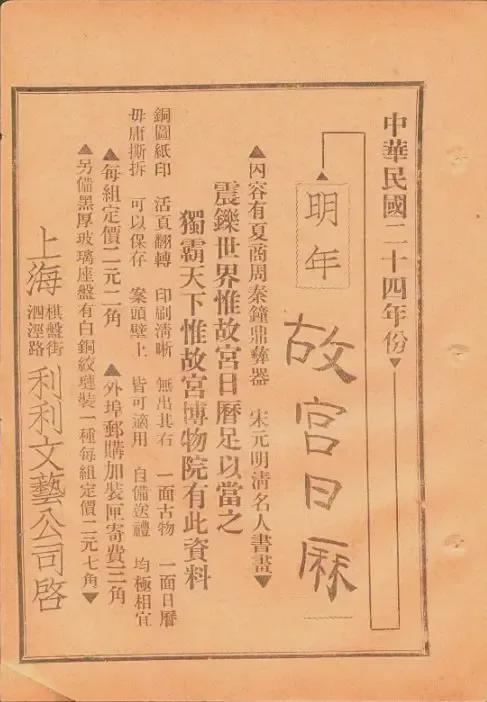 中華民國二十四年份▼
▲明年
故宮日厤
▲內容有夏商周秦鐘鼎彝器 宋元明清名人書畫▼
震鑠世界惟故宮日曆足以當之
獨霸天下惟故宮博物院有此資料
銅圖紙印 活頁翻轉 印刷清晰 無出其右 一面古物 一面日曆
毋庸撕拆 可以保存 案頭壁上 皆可適用 自備送禮 均極相宜
▲每組定價二元二角 ▲外埠郵購加裝匣寄費三角
▲另備黑厚玻璃座盤有白銅絞鏈裝一種每組定價二元七角▼
上海 棋盤街 泗涇路 利利文藝公司啓